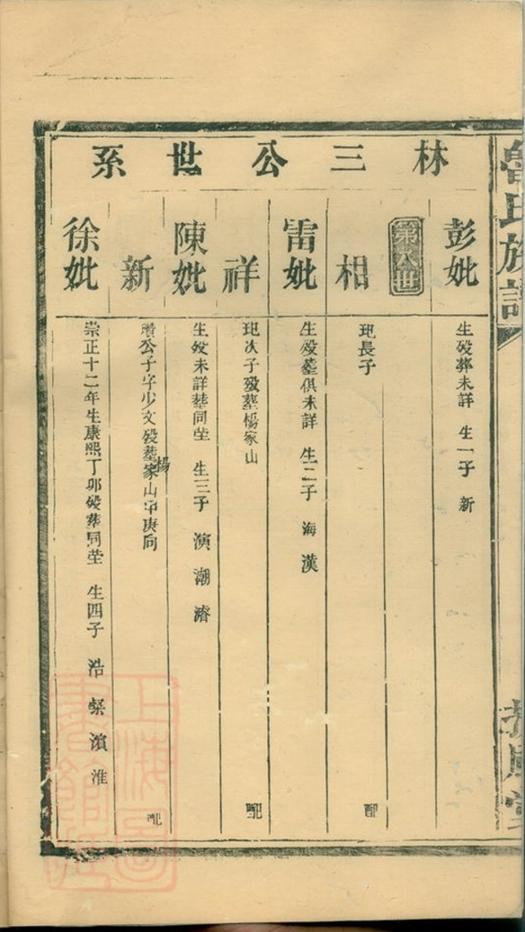 魯氏族譜
林三公世系
彭妣
生歿葬未詳 生一子 新
第八世
相
玘長子
配
雷妣
生歿塟俱未詳 生二子 海 漢
祥
玘次子歿葬楊家山
配
陳妣
生歿未詳葬同塋 生三子 演 潮 濬
新
公子字少文歿塟楊家山甲庚向
配
徐妣
崇正十二年生康熙丁卯歿葬同塋 生四子 浩 濱 淮
上海圖書館藏